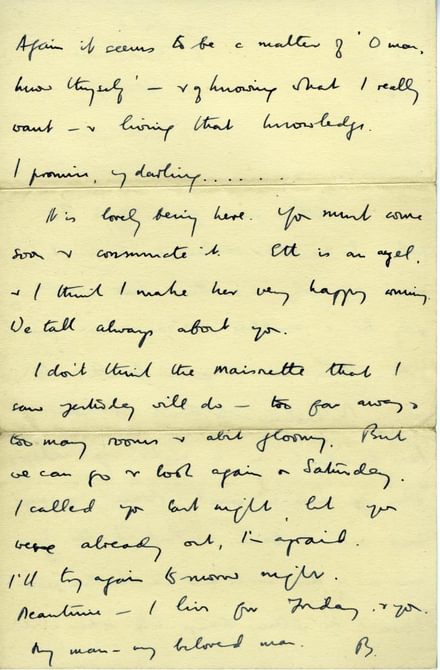 Again it seems to be a matter of 'O man,
know thyself' – & of knowing what I really
want – & living that knowledge.
I promise, my darling.......
It is lovely being here. You must come
soon & consummate it. Ett is an angel,
& I think I make her very happy coming.
We talk always about you.
I don't think the maisonette that I
saw yesterday will do – too far away &
too many rooms & a bit gloomy. But
we can go & look again on Saturday.
I called you last night, but you
were already out, I'm afraid.
I'll try again tomorrow night.
Meantime – I live for Friday & you.
My man – my beloved man. B.